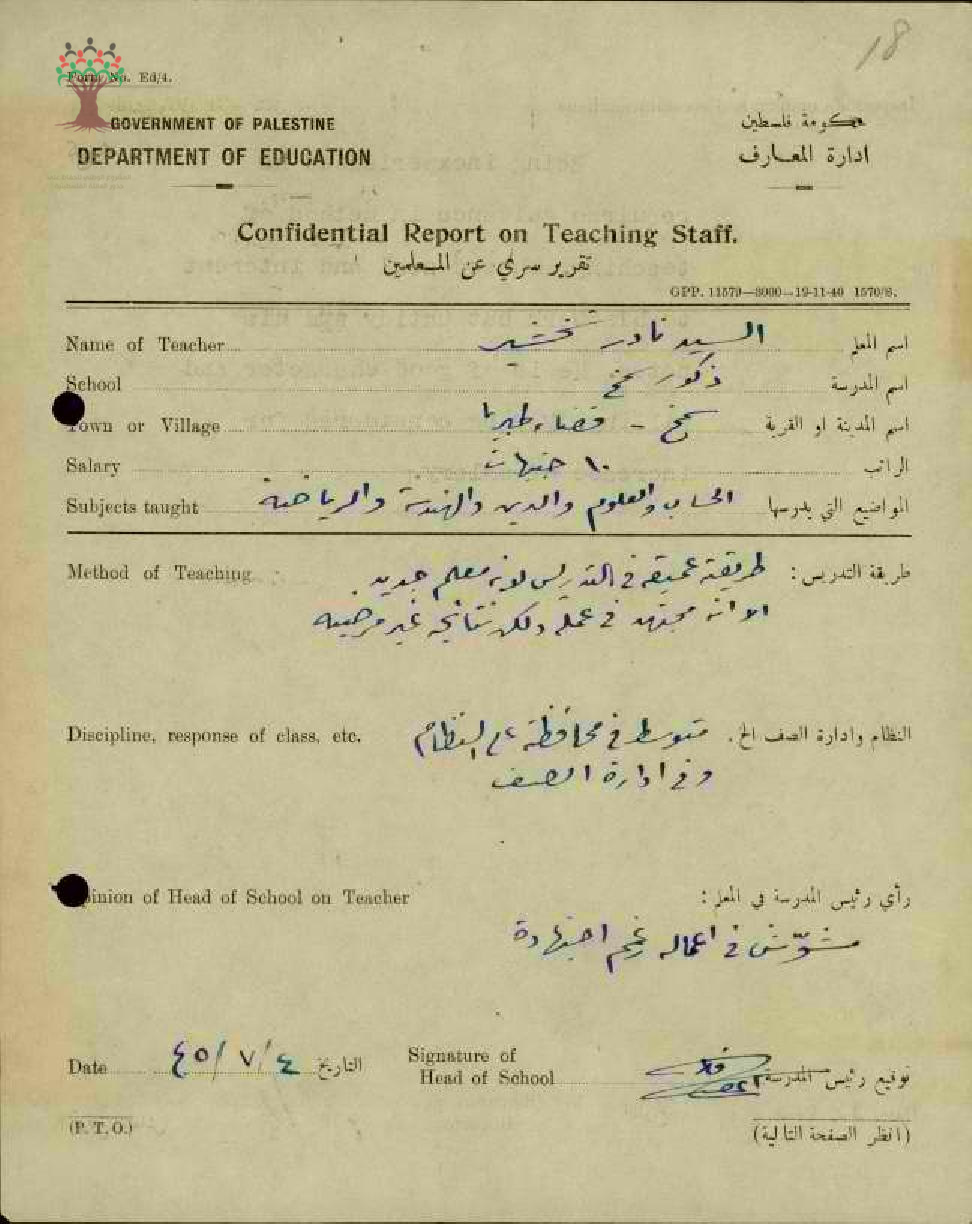 18
Form No. Ed/4.
GOVERNMENT OF PALESTINE
حكومة فلسطين
DEPARTMENT OF EDUCATION
ادارة المعارف
Confidential Report on Teaching Staff.
تقرير سري عن المعلمين
GPP. 11579—3000—19-11-40 1570/S.
Name of Teacher السيد نادر اسم المعلم
School ذكور سمخ اسم المدرسة
Town or Village سمخ - قضاء طبريا اسم المدينة او القرية
Salary ١٠ جنيهات الراتب
Subjects taught الحساب والعلوم والدين والهندسة والرياضة المواضيع التي يدرسها
Method of Teaching : طريقة التدريس : في التدريس لانه معلم جديد
الا انه مجتهد في عمله ولكن نتائجه غير مرضيه
Discipline, response of class, etc. النظام وادارة الصف الخ. متوسط في محافظة على النظام
وفي ادارة الصف
Opinion of Head of School on Teacher رأي رئيس المدرسة في المعلم :
مشوّش في اعماله رغم اجتهاده
Date ٤٥/٧/٤ التاريخ
Signature of
Head of School توقيع رئيس المدرسة
(P. T. O.)
(انظر الصفحة التالية)